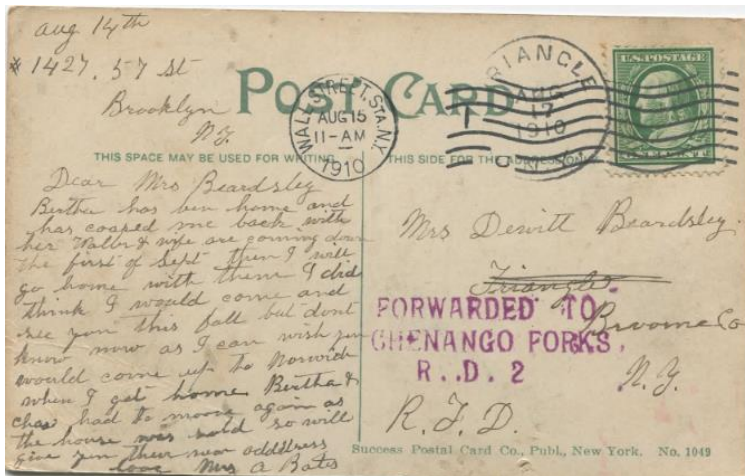 Aug 14th
# 1427. 57 St
Brooklyn
N.Y.
POST CARD
WALL STREET. STA. N.Y.
AUG 15
11-AM
1910
TRIANGLE
AUG
17
1910
N.Y.
U.S. POSTAGE
THIS SPACE MAY BE USED FOR WRITING
THIS SIDE FOR THE ADDRESS ONLY
Dear Mrs Beardsley
Bertha has ben home and
has coaped me back with
her Walter & wife are coming down
the first of Sept then I will
go home with them I did
think I would come and
see you this fall but dont
know now as I can wish you
would come up to Norwich
when I get home Bertha &
chas had to moove again as
the house was sold so will
give you their new adddress
love Mrs A Bates
Mrs Dewitt Beardsley
Triangle
Broome Co
N.Y.
R.F.D.
FORWARDED TO
CHENANGO FORKS,
R..D. 2
Success Postal Card Co., Publ., New York. No. 1049